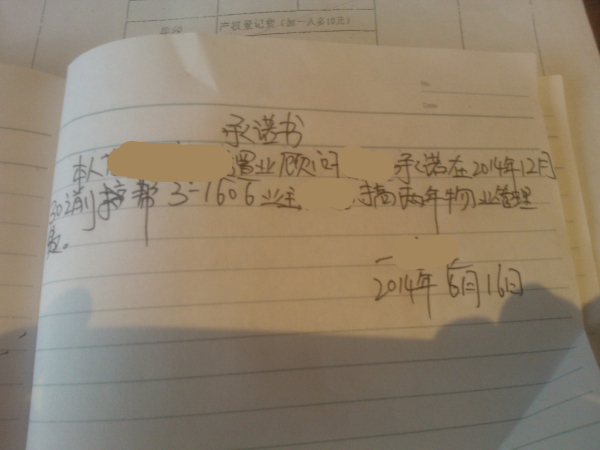 产权登记费（加一人多10元）
No
Date
承诺书
本人 置业顾问 承诺在2014年12月
30之前 帮 3-1606业主 搞两年物业管理
费。
2014年6月16日